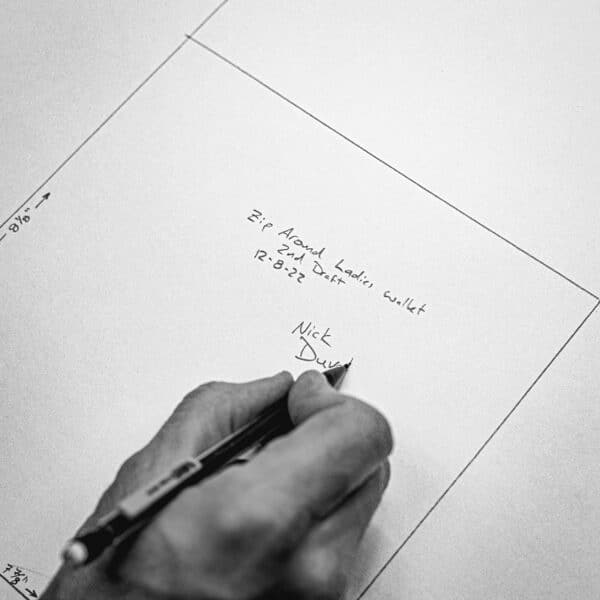 8 1/8"
Zip Around Ladies Wallet
2nd Draft
12-8-22
Nick
Duv